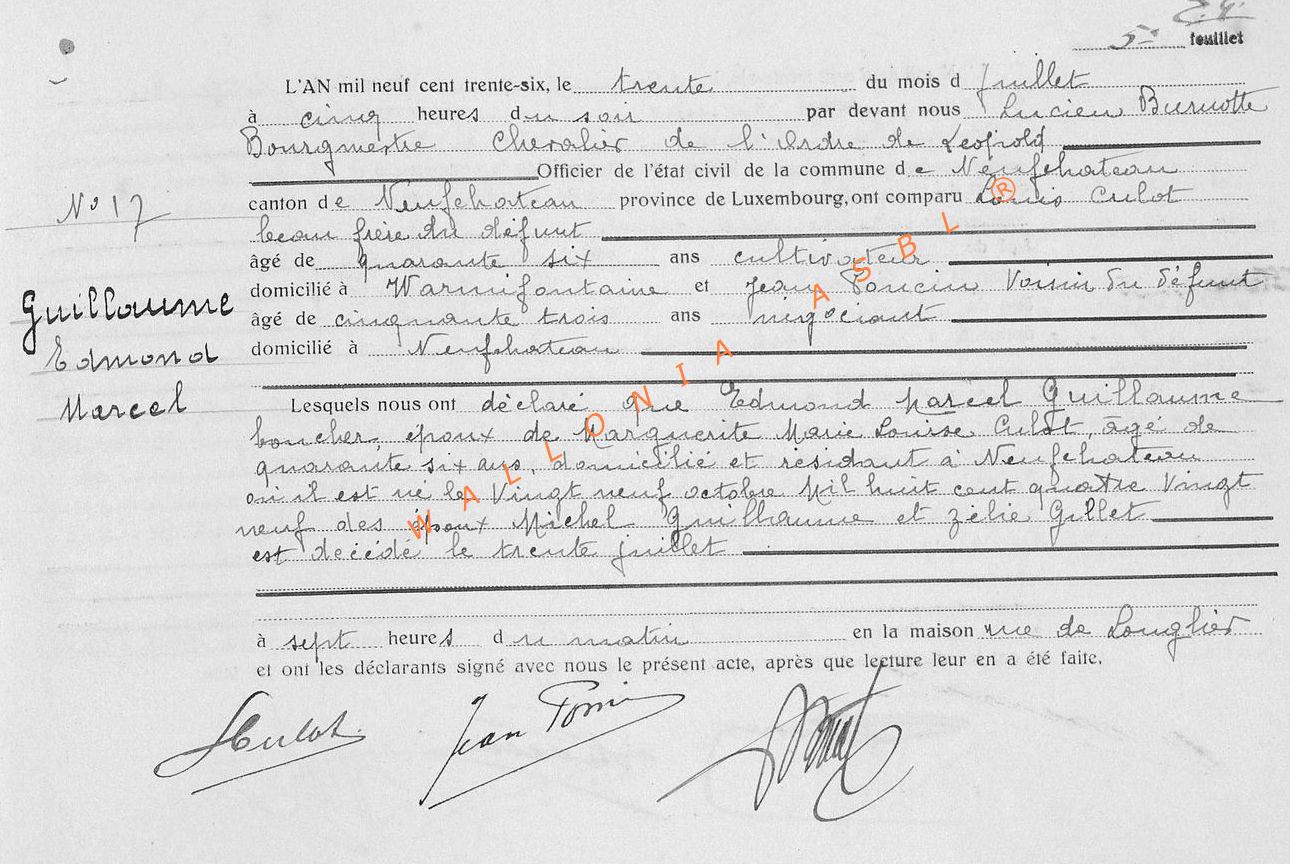 5e feuillet
L'AN mil neuf cent trente-six, le trente du mois d Juillet
à cinq heures du soir par devant nous Lucien Burnotte
Bourgmestre Chevalier de l'Ordre de Léopold
Officier de l'état civil de la commune de Neufchateau
N° 17
canton de Neufchateau province de Luxembourg, ont comparu Louis Culot
beau frère du défunt
âgé de quarante six ans cultivateur
domicilié à Warmifontaine et Jean Poncin Voisin du défunt
Guillaume
âgé de cinquante trois ans négociant
Edmond
domicilié à Neufchateau
Marcel
Lesquels nous ont déclaré que Edmond Marcel Guillaume
boucher, époux de Marguerite Marie Louise Culot, âgé de
quarante six ans, domicilié et résidant à Neufchateau
où il est né le Vingt neuf octobre Mil huit cent quatre Vingt
neuf des époux Michel Guillaume et Zélie Gillet
est décédé le trente juillet
WALLONIA ASBL ®
à sept heures du matin en la maison rue de Longlier
et ont les déclarants signé avec nous le présent acte, après que lecture leur en a été faite.
LCulot Jean Poncin